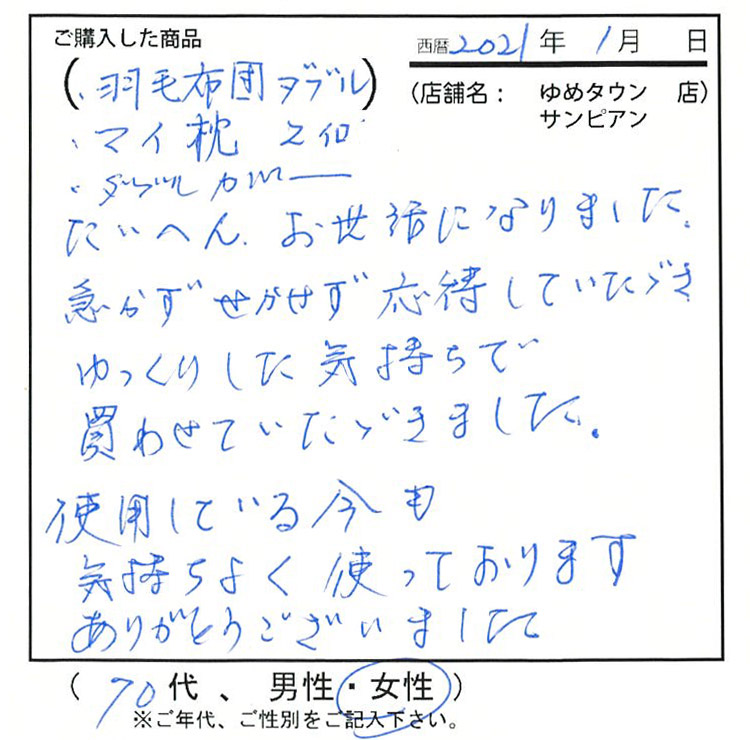 ご購入した商品
西暦2021年 1月 日
(・羽毛布団ダブル)
(店舗名: ゆめタウン 店)
サンピアン
・マイ枕 2個
・ダブルカバー
たいへん、お世話になりました。
急かずせかせず応待していただき
ゆっくりした気持ちで
買わせていただきました。
使用している今も
気持ちよく使っております
ありがとうございました
(70代、男性・女性)
※ご年代、ご性別をご記入下さい。